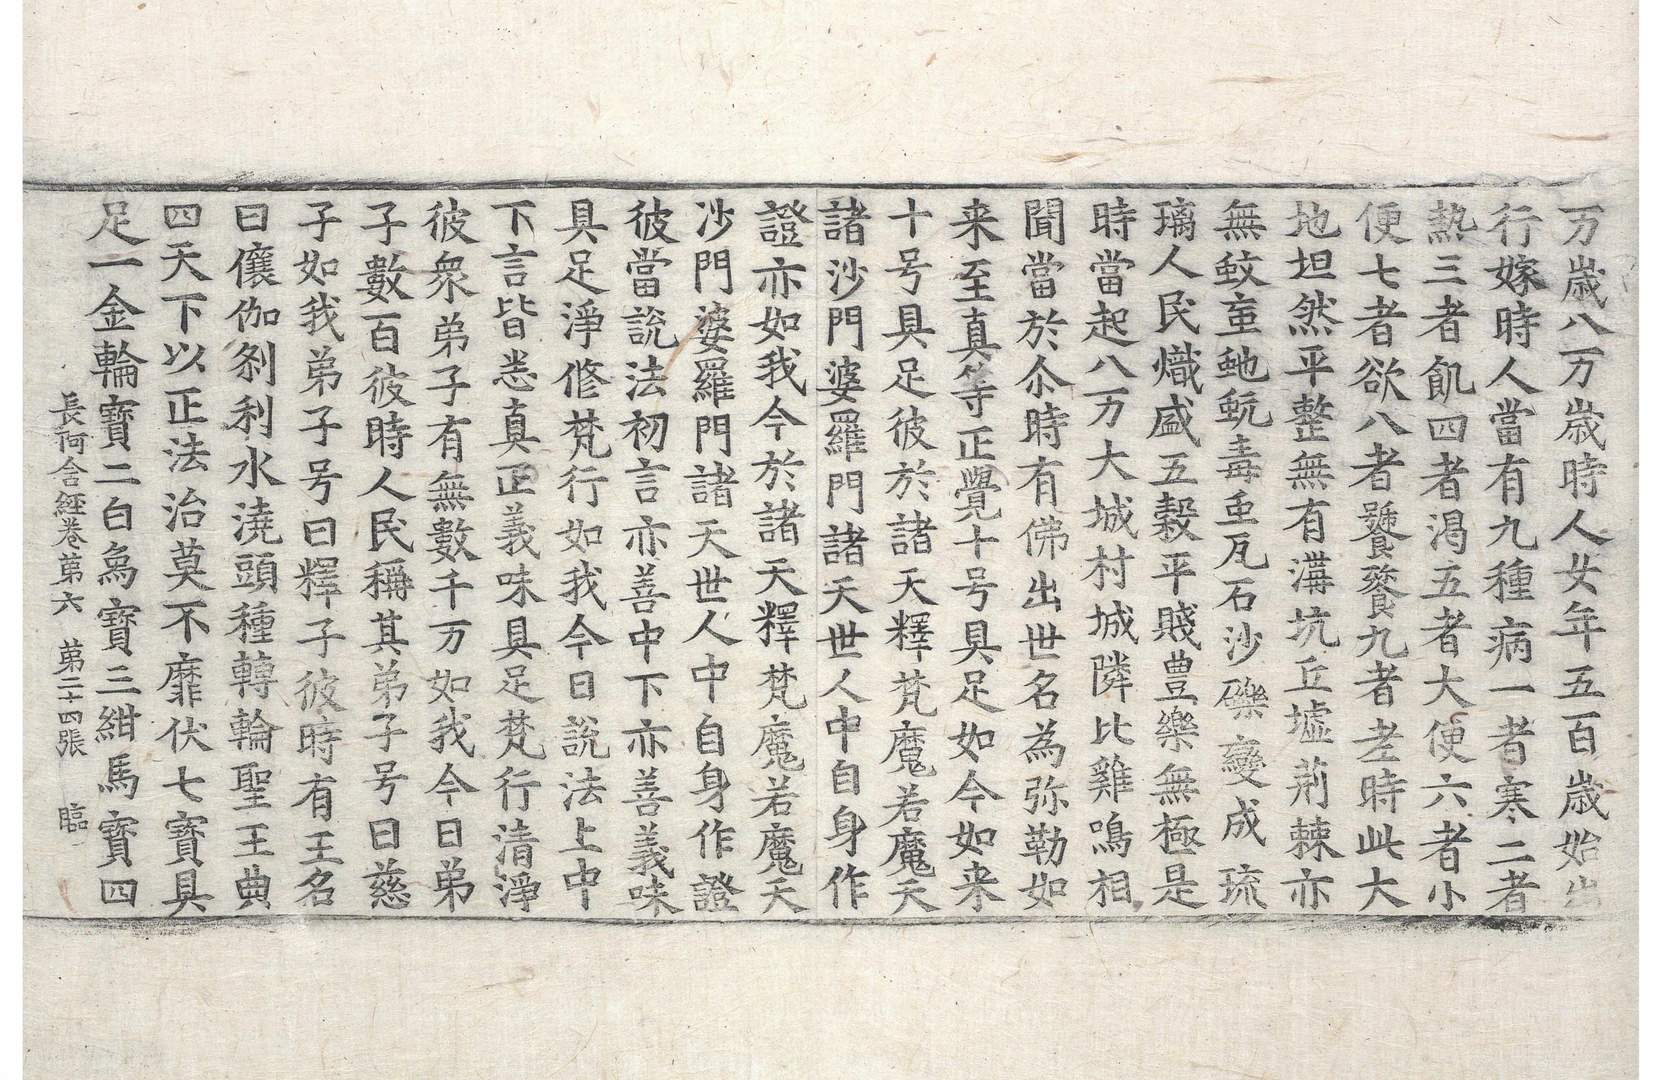 万歲八万万歲時人女年五百歲始出
行嫁時人當有九種病一者寒二者
熱三者飢四者渴五者大便六者小
便七者欲八者饕餮九者老時此大
地坦然平整無有溝坑丘墟荊棘亦
無蚊䖟虵蚖毒虫瓦石沙礫變成琉
璃人民熾盛五穀平賤豊樂無極是
時當起八万大城村城隣比雞鳴相
聞當於尒時有佛出世名為弥勒如
来至真等正覺十号具足如今如来
十号具足彼於諸天釋梵魔若魔天
諸沙門婆羅門諸天世人中自身作
證亦如我今於諸天釋梵魔若魔天
沙門婆羅門諸天世人中自身作證
彼當說法初言亦善中下亦善義味
具足淨修梵行如我今日說法上中
下言皆悉真正義味具足梵行清淨
彼衆弟子有無數千万如我今日弟
子數百彼時人民稱其弟子号曰慈
子如我弟子号曰釋子彼時有王名
曰儴伽剎利水澆頭種轉輪聖王典
四天下以正法治莫不靡伏七寶具
足一金輪寶二白烏寶三紺馬寶四
長阿含経卷第六 第二十四張 臨